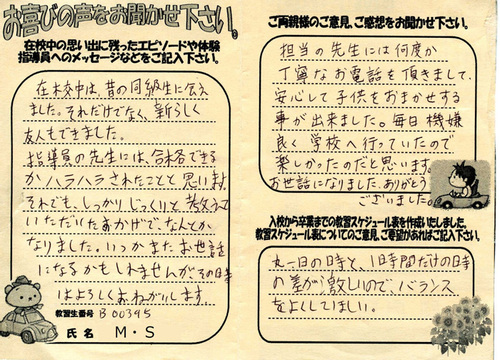 お喜びの声をお聞かせ下さい。
在校中の思い出に残ったエピソードや体験
指導員へのメッセージなどをご記入下さい。
在校中は、昔の同級生に会え
ました。それだけでなく、新らしく
友人もできました。
指導員の先生には、合格できる
かハラハラされたことと思います
それでも、しっかりじっくりと教えて
いただいたおかげで、なんとか
なりました。いつかまたお世話
になるかもしれませんがその時
はよろしくおねがいします
教習生番号 B00345
氏名 M・S
ご両親様のご意見、ご感想をお聞かせ下さい。
担当の先生には何度か
丁寧なお電話を頂きまして、
安心して子供をおまかせする
事が出来ました。毎日機嫌
良く学校へ行っていたので
楽しかったのだと思います。
お世話になりました。ありがとう
ございました。
入校から卒業までの教習スケジュール表を作成いたしました。
教習スケジュール表についてのご意見、ご要望があればご記入下さい。
丸一日の時と、1時間だけの時
の差が激しいので、バランス
をよくしてほしい。